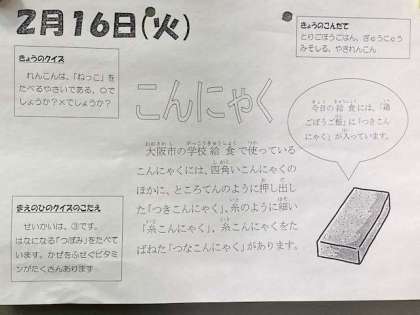 2月16日(火)
きょうのこんだて
とりごぼうごはん、ぎゅうにゅう
みそしる、やきれんこん
きょうのクイズ
れんこんは、「ねっこ」を
たべるやさいである。○で
しょうか?×でしょうか?
こんにゃく
今日の給食には、「鶏
ごぼうご飯」に「つきこん
にゃく」が入っています。
大阪市の学校給食で使っている
こんにゃくには、四角いこんにゃくの
ほかに、ところてんのように押し出し
た「つきこんにゃく」、糸のように細い
「糸こんにゃく」、糸こんにゃくをた
ばねた「つなこんにゃく」があります。
まえのひのクイズのこたえ
せいかいは、③です。
はなになる「つぼみ」をたべて
います。かぜをふせぐビタミ
ンがたくさんあります